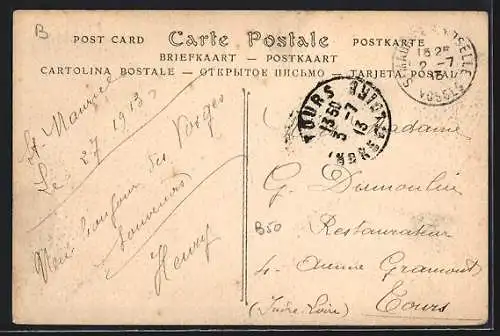 B
POST CARD Carte Postale POSTKARTE
BRIEFKAART — POSTKAART
CARTOLINA POSTALE — ОТКРЫТОЕ ПИСЬМО — TARJETA POSTAL
ST MAURICE MOSELLE
13 25
2 -7
13
VOSGES
TOURS
13 50
3 -7
13
INDRE
St Maurice
Le 2 7 1913
bonjour des Vosges
Souvenirs
Henry
Madame
G. Dumoulin
B50
Restaurateur
4. Avenue Gramont
Tours
(Indre-Loire)